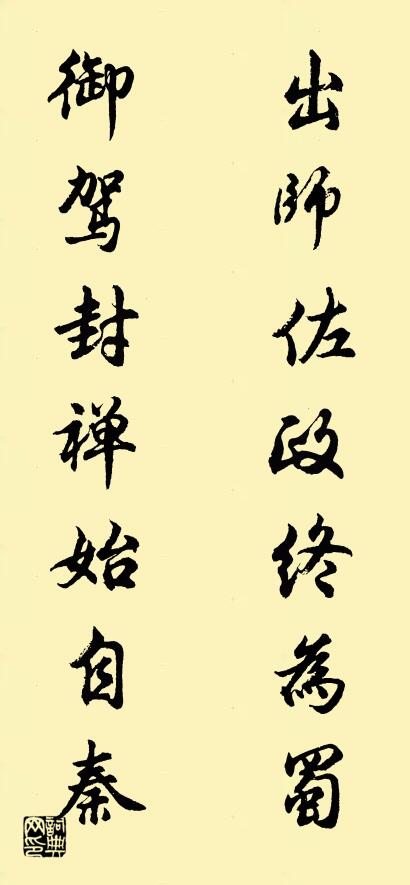 出師佐政終為蜀
御驾封禅始自秦
詞典网印